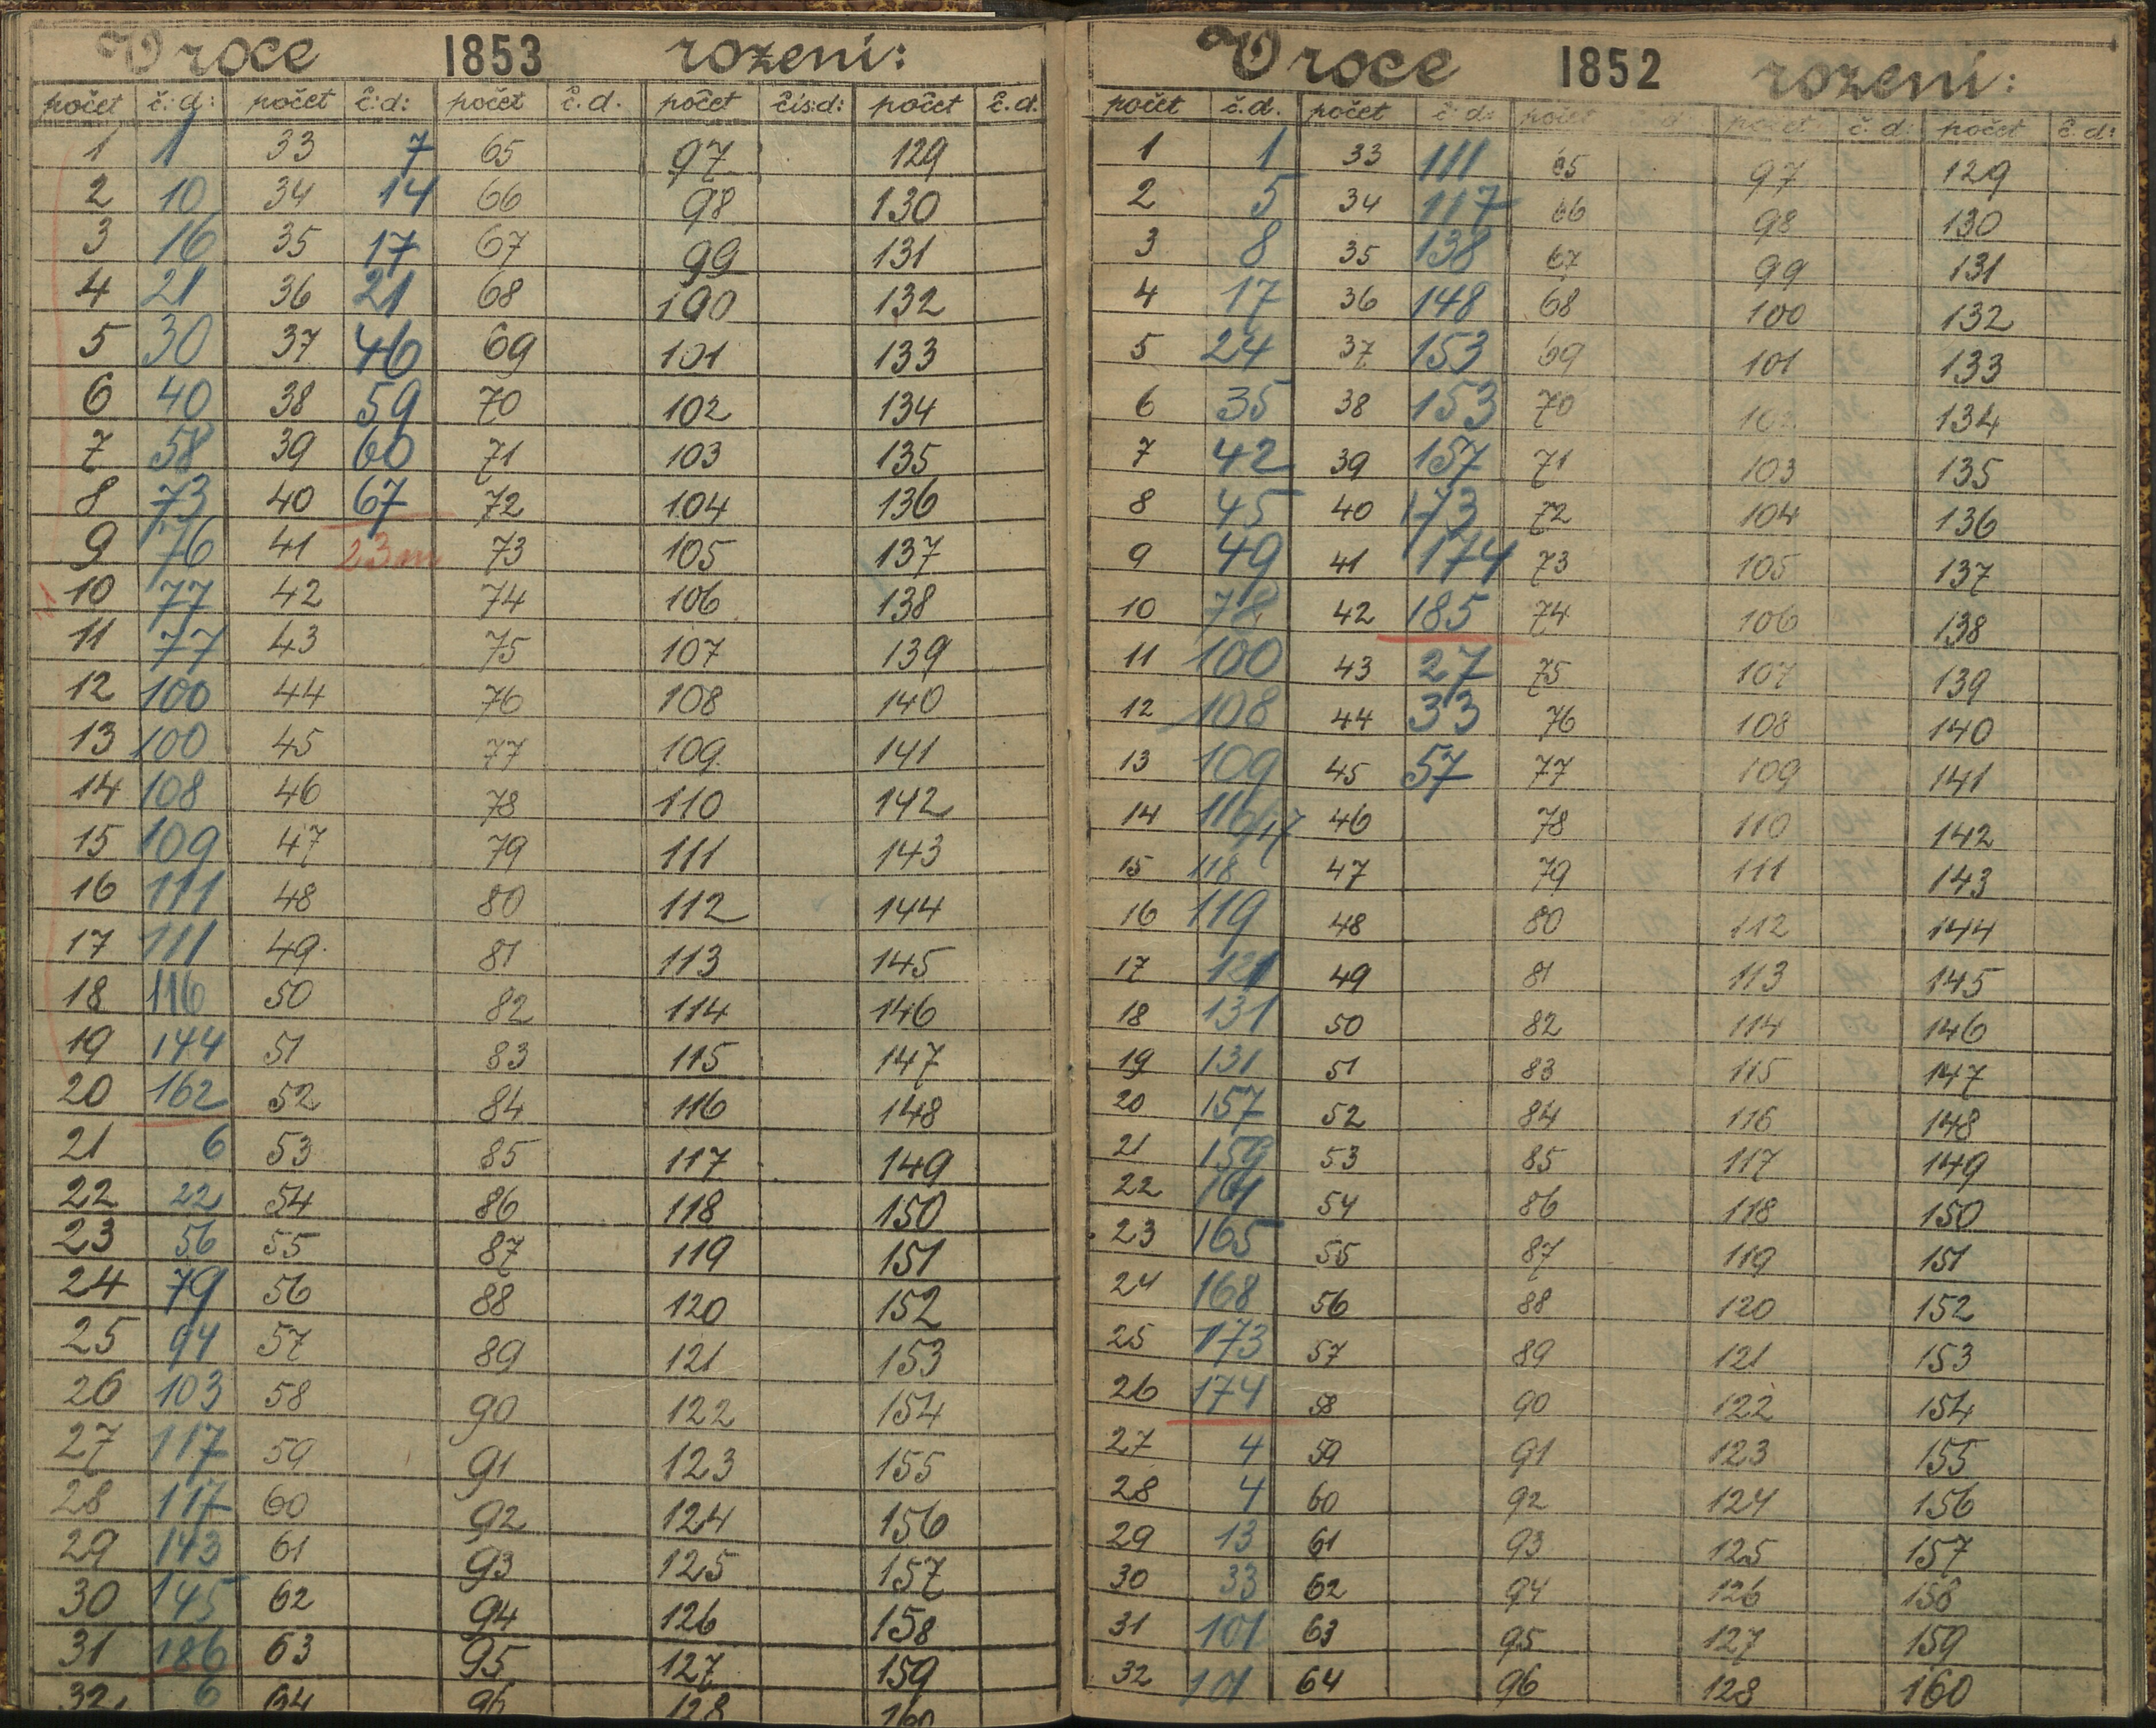 V roce 1853 rozeni:
počet č: d: počet č: d: počet č. d. počet čís: d: počet č. d.
1 1 33 7 65 97 129
2 10 34 14 66 98 130
3 16 35 17 67 99 131
4 21 36 21 68 100 132
5 30 37 46 69 101 133
6 40 38 59 70 102 134
7 58 39 60 71 103 135
8 73 40 67 72 104 136
9 76 41 23 m 73 105 137
10 77 42 74 106 138
11 77 43 75 107 139
12 100 44 76 108 140
13 100 45 77 109 141
14 108 46 78 110 142
15 109 47 79 111 143
16 111 48 80 112 144
17 111 49 81 113 145
18 116 50 82 114 146
19 144 51 83 115 147
20 162 52 84 116 148
21 6 53 85 117 149
22 22 54 86 118 150
23 56 55 87 119 151
24 79 56 88 120 152
25 94 57 89 121 153
26 103 58 90 122 154
27 117 59 91 123 155
28 117 60 92 124 156
29 143 61 93 125 157
30 145 62 94 126 158
31 186 63 95 127 159
32 6 64 96 128 160
V roce 1852 rozeni:
počet č. d. počet č: d: počet d. počet č. d: počet č. d:
1 1 33 111 65 97 129
2 5 34 117 66 98 130
3 8 35 138 67 99 131
4 17 36 148 68 100 132
5 24 37 153 69 101 133
6 35 38 153 70 102 134
7 42 39 157 71 103 135
8 45 40 173 72 104 136
9 49 41 174 73 105 137
10 78 42 185 74 106 138
11 100 43 27 75 107 139
12 108 44 33 76 108 140
13 109 45 57 77 109 141
14 116/17 46 78 110 142
15 118 47 79 111 143
16 119 48 80 112 144
17 121 49 81 113 145
18 131 50 82 114 146
19 131 51 83 115 147
20 157 52 84 116 148
21 159 53 85 117 149
22 161 54 86 118 150
23 165 55 87 119 151
24 168 56 88 120 152
25 173 57 89 121 153
26 174 58 90 122 154
27 4 59 91 123 155
28 4 60 92 124 156
29 13 61 93 125 157
30 33 62 94 126 158
31 101 63 95 127 159
32 101 64 96 128 160